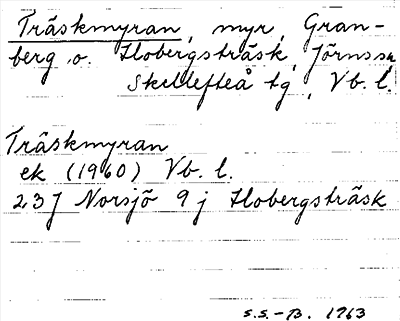 Träskmyran, myr, Gran-
berg o. Hobergsträsk, Jörns sn
Skellefteå tg, Vb. l.
Träskmyran
ek (1960) Vb. l.
23J Norsjö 9j Hobergsträsk
S.S.-B. 1963